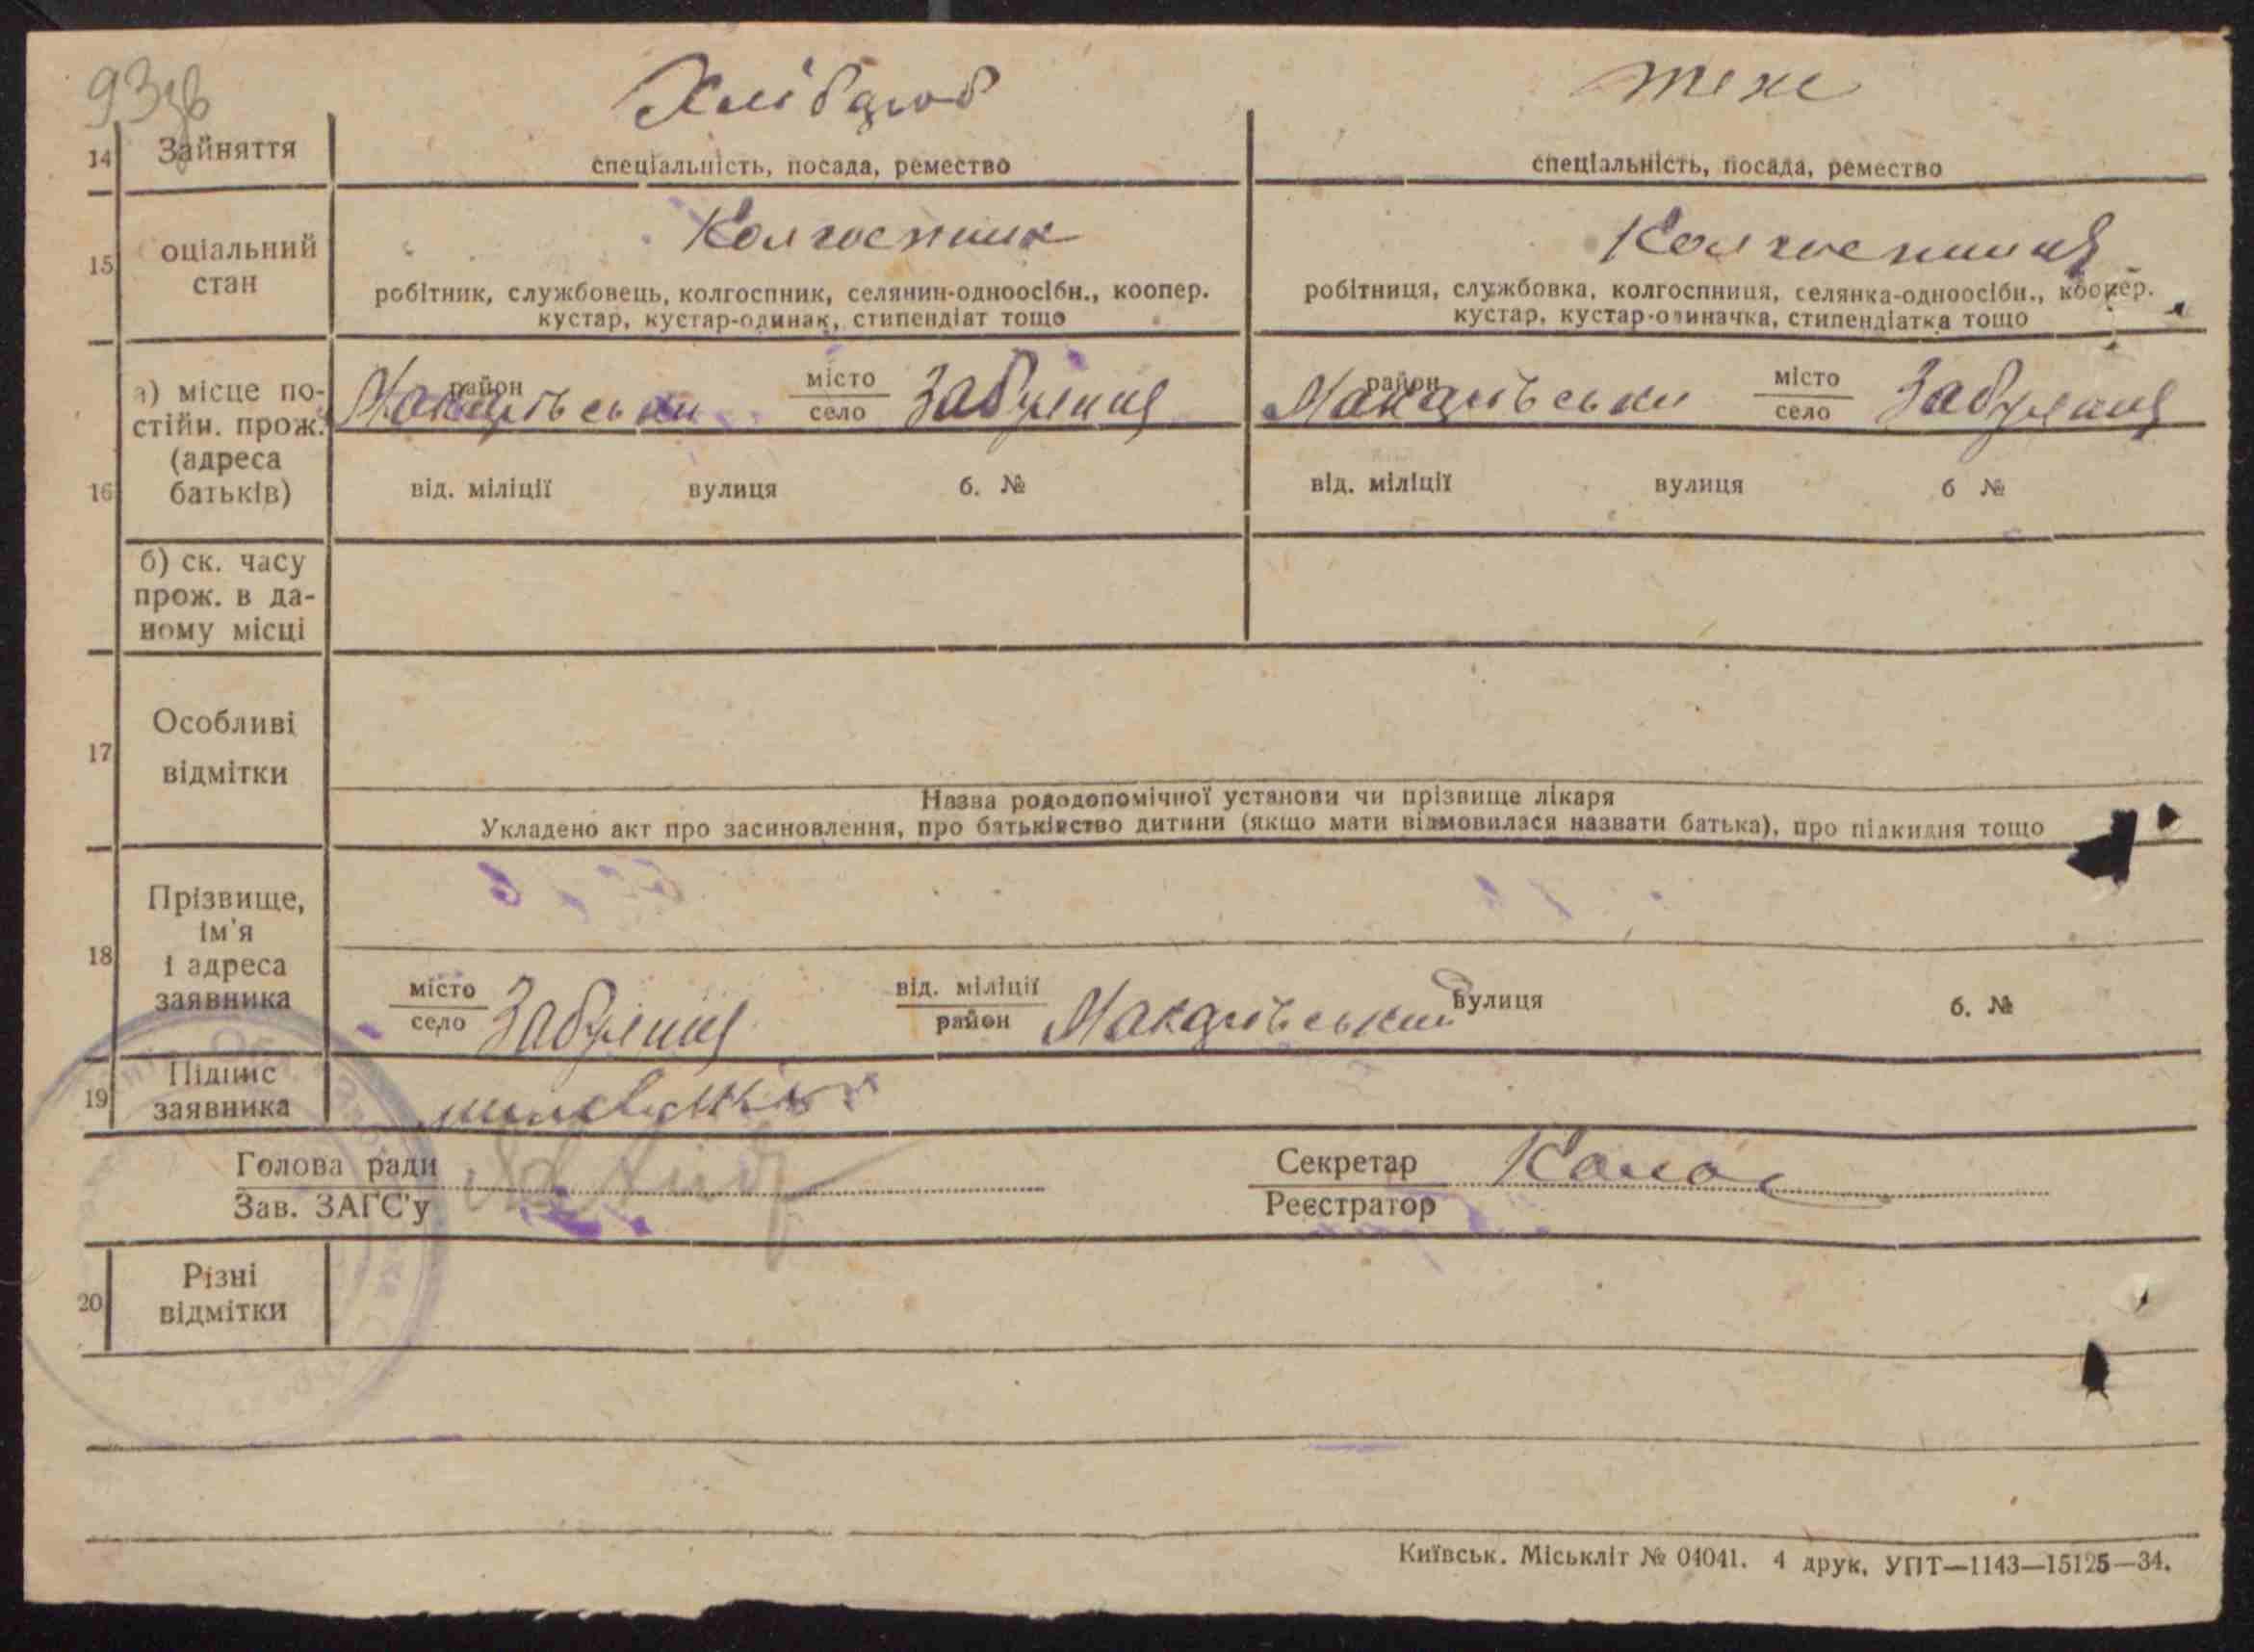 93зв
Хлібороб теж
14 Зайняття
спеціальність, посада, ремество спеціальність, посада, ремество
Колгоспник Колгоспниця
15 оціальний
стан
робітник, службовець, колгоспник, селянин-одноосібн., коопер. робітниця, службовка, колгоспниця, селянка-одноосібн., коопер.
кустар, кустар-одинак, стипендіат тощо кустар, кустар-одиначка, стипендіатка тощо
а) місце по-
стійн. прож.
(адреса
батьків)
Макарівськи район місто село Забуяння Макарівськи район місто село Забуяння
16 від. міліції вулиця б. № від. міліції вулиця б №
б) ск. часу
прож. в да-
ному місці
17 Особливі
відмітки
Назва рододопомічної установи чи прізвище лікаря
Укладено акт про засиновлення, про батьківство дитини (якщо мати відмовилася назвати батька), про підкидня тощо
18 Прізвище,
ім'я
і адреса
заявника
місто село Забуяння від. міліції район Макарівський вулиця б. №
19 Підпис
заявника
Голова ради
Зав. ЗАГС'у
Секретар Колос
Реєстратор
20 Різні
відмітки
Київськ. Міськліт № 04041. 4 друк. УПТ—1143—15125—34.